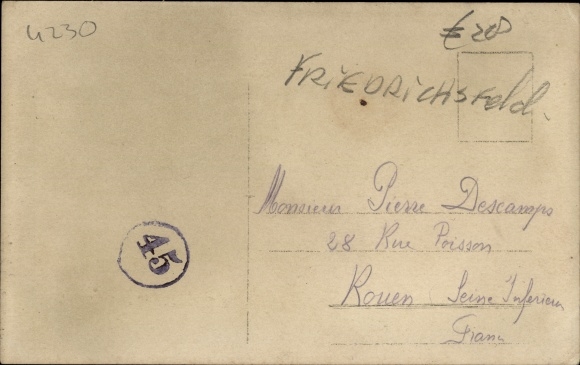 4230
€ 28
FRiEDRiCHSFeld.
Monsieur Pierre Descamps
28 Rue Poisson
Rouen Seine Inferieure
France
45